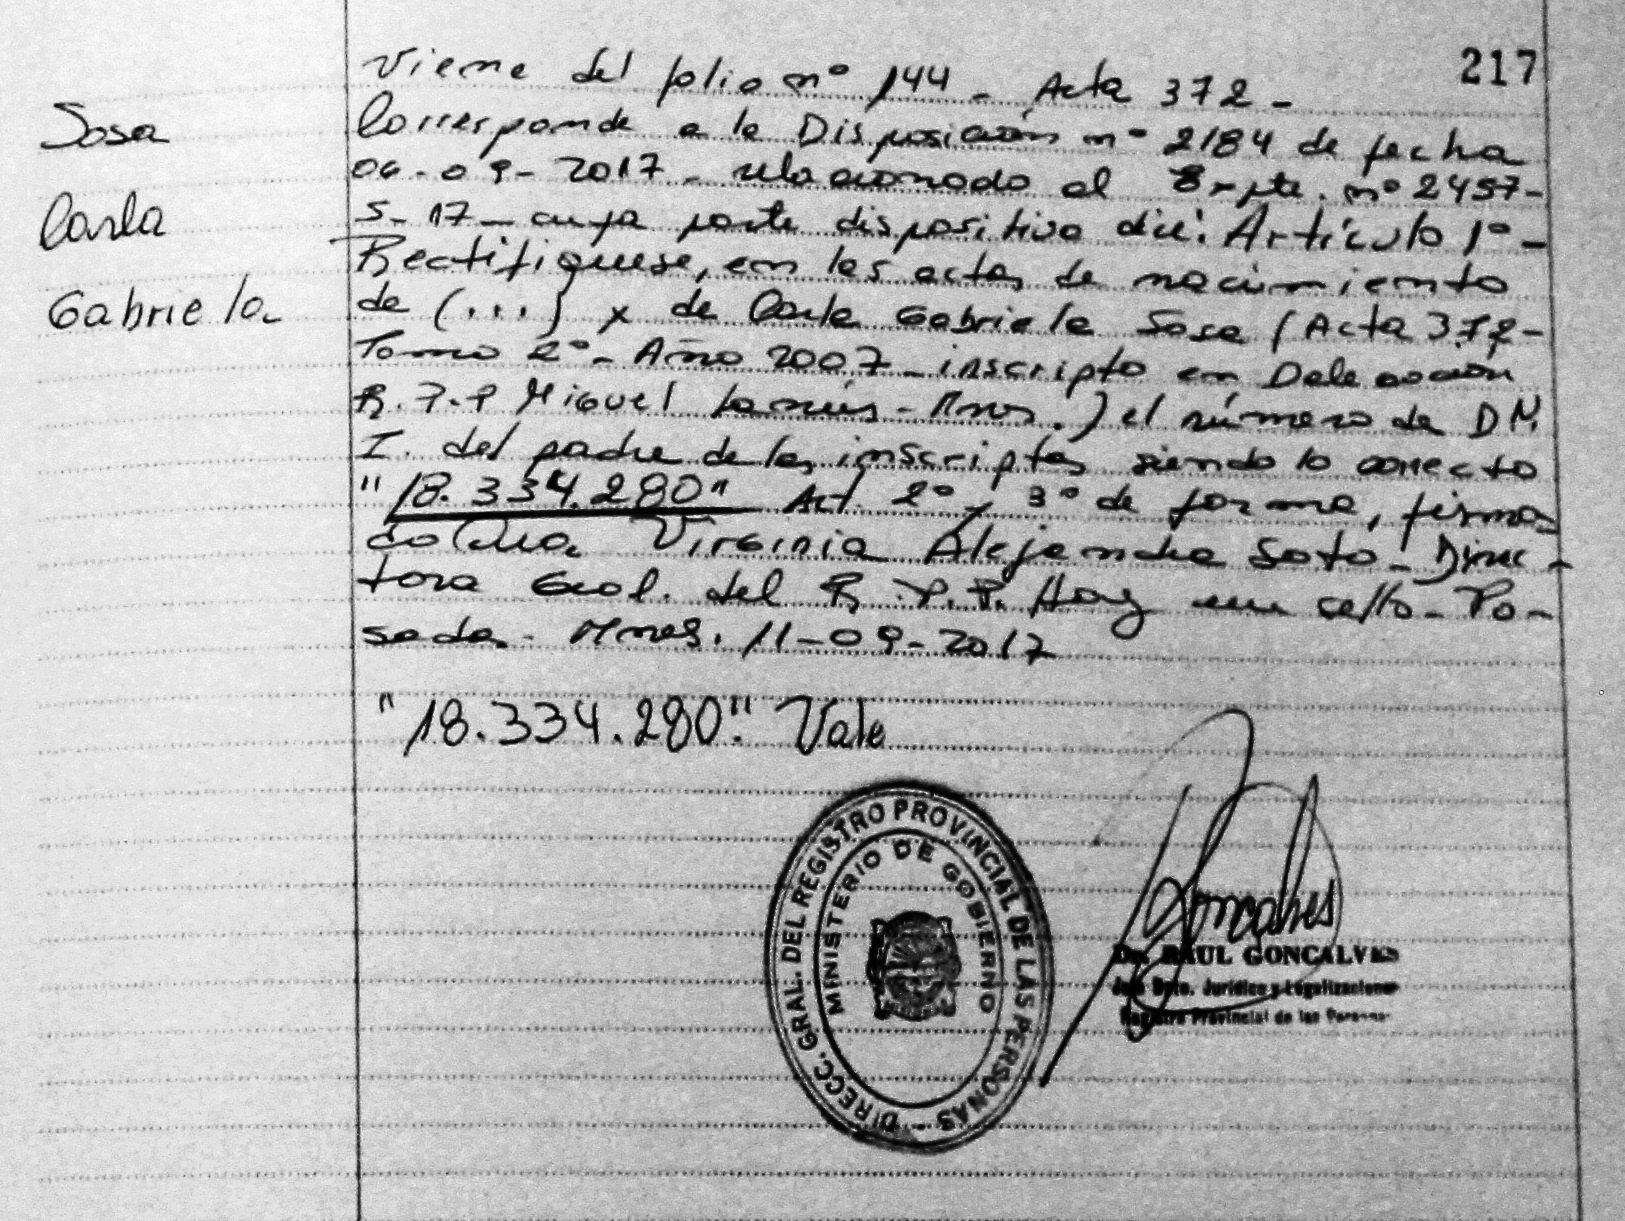 217
Viene del folio nº 144 - Acta 372 -
Sosa
Carla
Gabriela
Corresponde a la Disposición nº 2184 de fecha
06-09-2017 - relacionado al Expte. nº 2457-
S-17 - cuya parte dispositiva dice: Artículo 1º -
Rectifiquese, en las actas de nacimiento
de (...) y de Carla Gabriela Sosa (Acta 372-
Tomo 2º - Año 2007 - inscripto en Delegación
R.P.P Miguel Lanús - Mnes.) el número de DN
I. del padre de las inscriptas siendo lo correcto
"18.334.280" Art. 2º y 3º de forma, firma
do Dra. Virginia Alejandra Soto - Direc-
tora Gral. del R.P.P. Hay un sello - Po-
sadas - Mnes. 11-09-2017
"18.334.280". Vale
DIRECC. GRAL. DEL REGISTRO PROVINCIAL DE LAS PERSONAS -
MINISTERIO DE GOBIERNO
Goncalves
Dr. RAUL GONCALVES
Jefe Dpto. Jurídico y Legalizaciones
Registro Provincial de las Personas